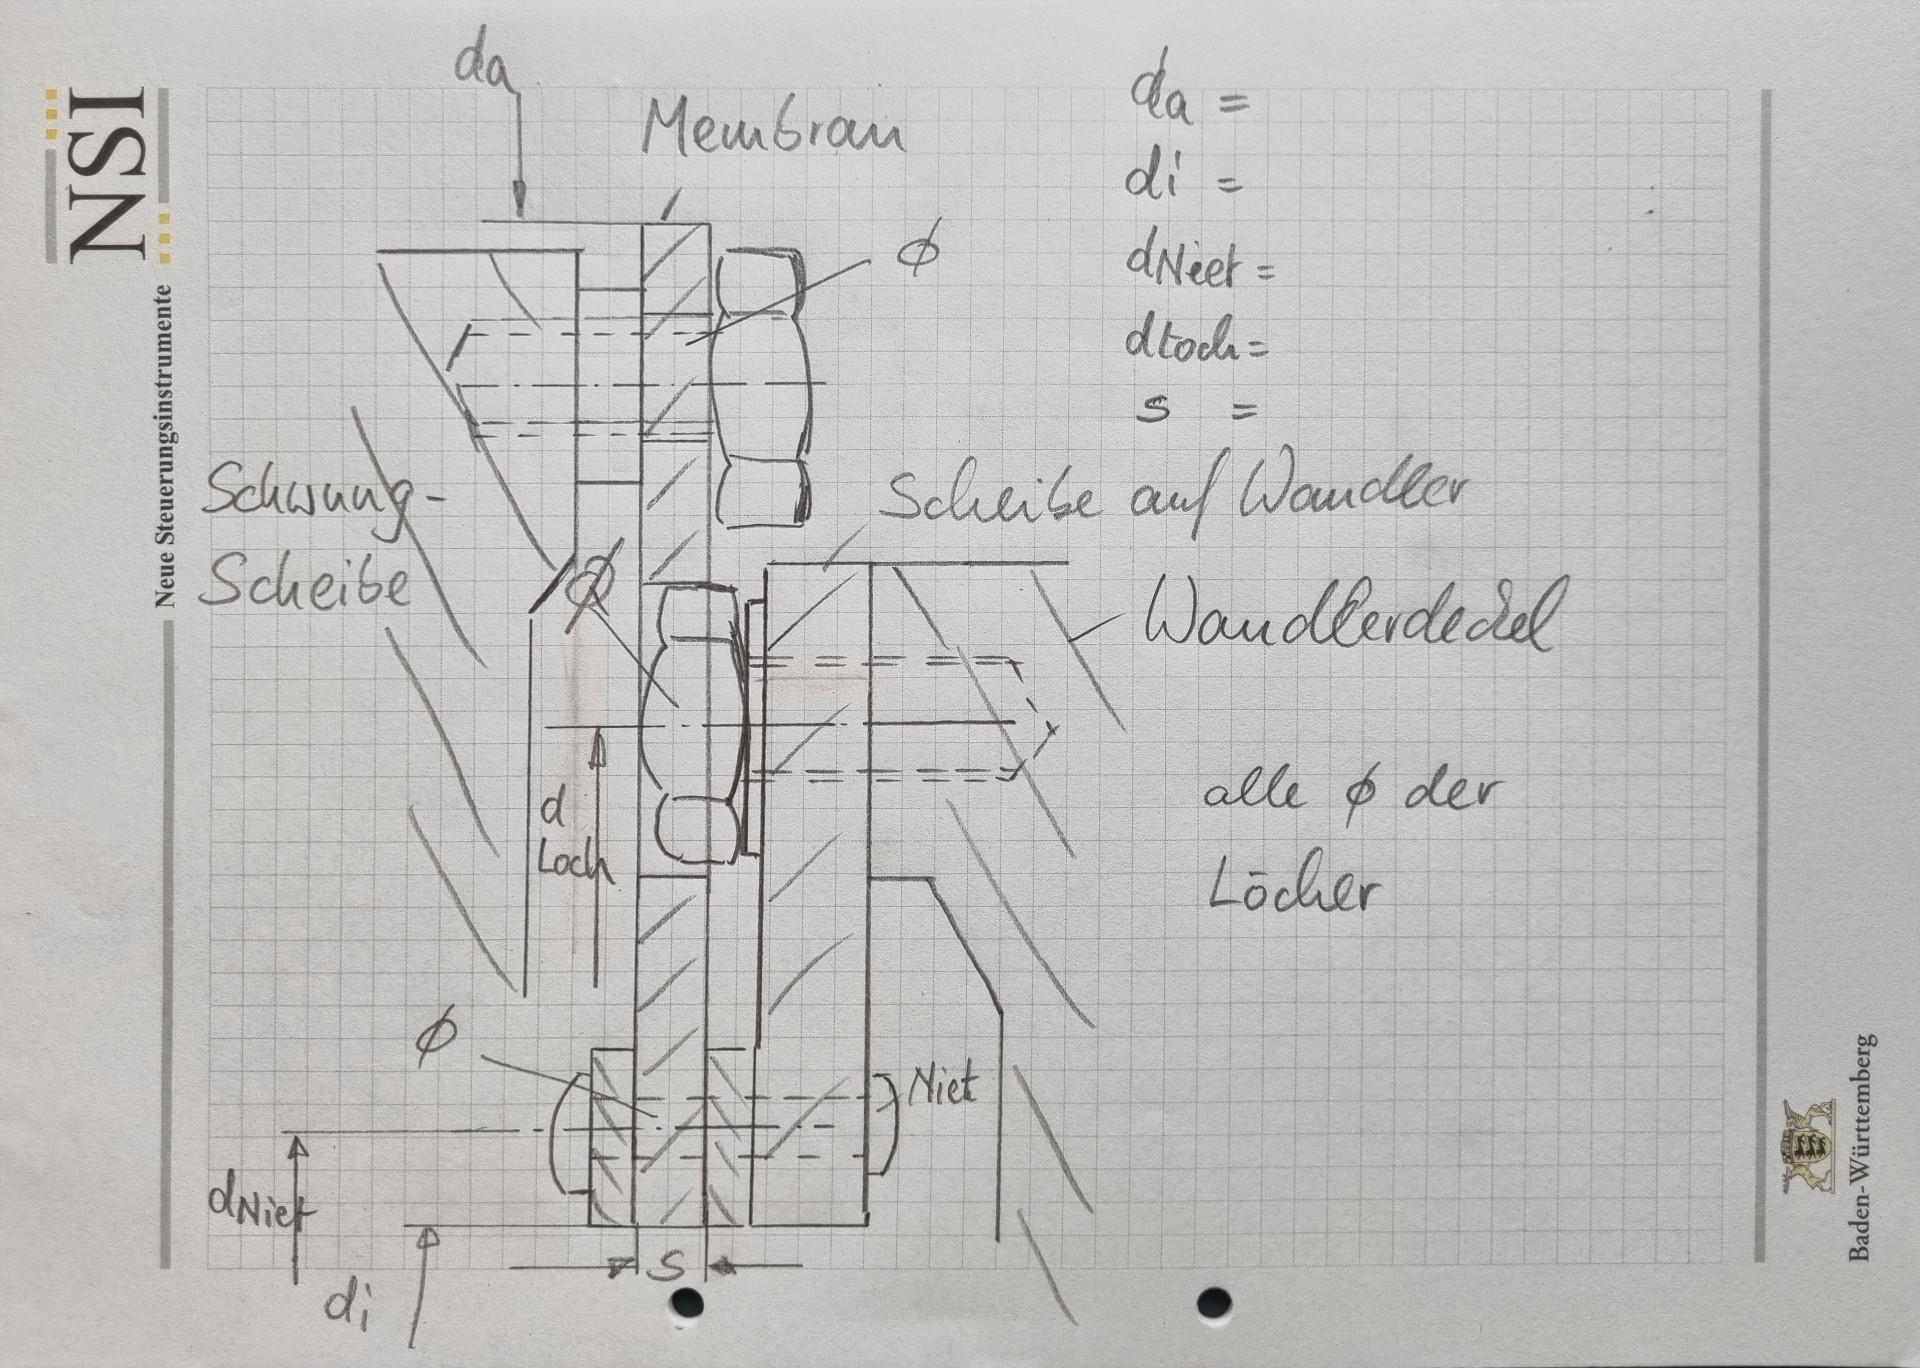 da
Membran
da =
di =
dNiet =
dLoch =
s =
NSI
Neue Steuerungsinstrumente
ϕ
Schwung-
Scheibe
Scheibe auf Wandler
ϕ
Wandlerdeckel
d
Loch
alle ϕ der
Löcher
ϕ
Niet
dNiet
di
s
Baden-Württemberg